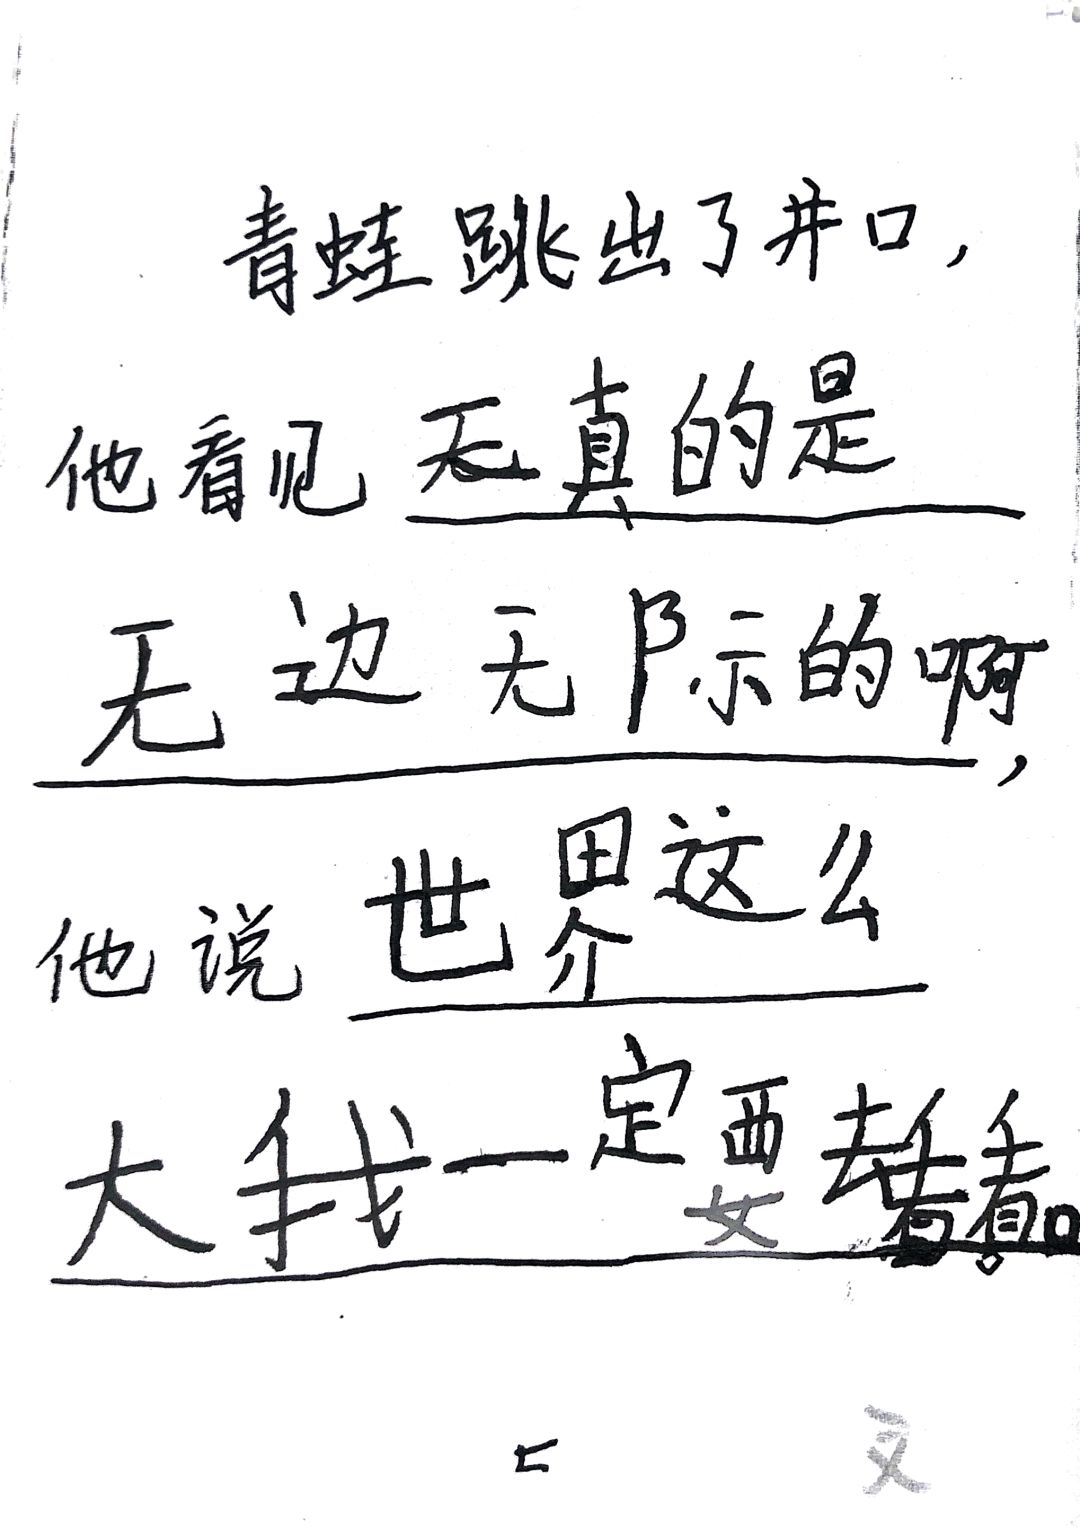 青蛙跳出了井口，
他看见无真的是
无边无际的啊，
他说世界这么
大我一定要去看看。